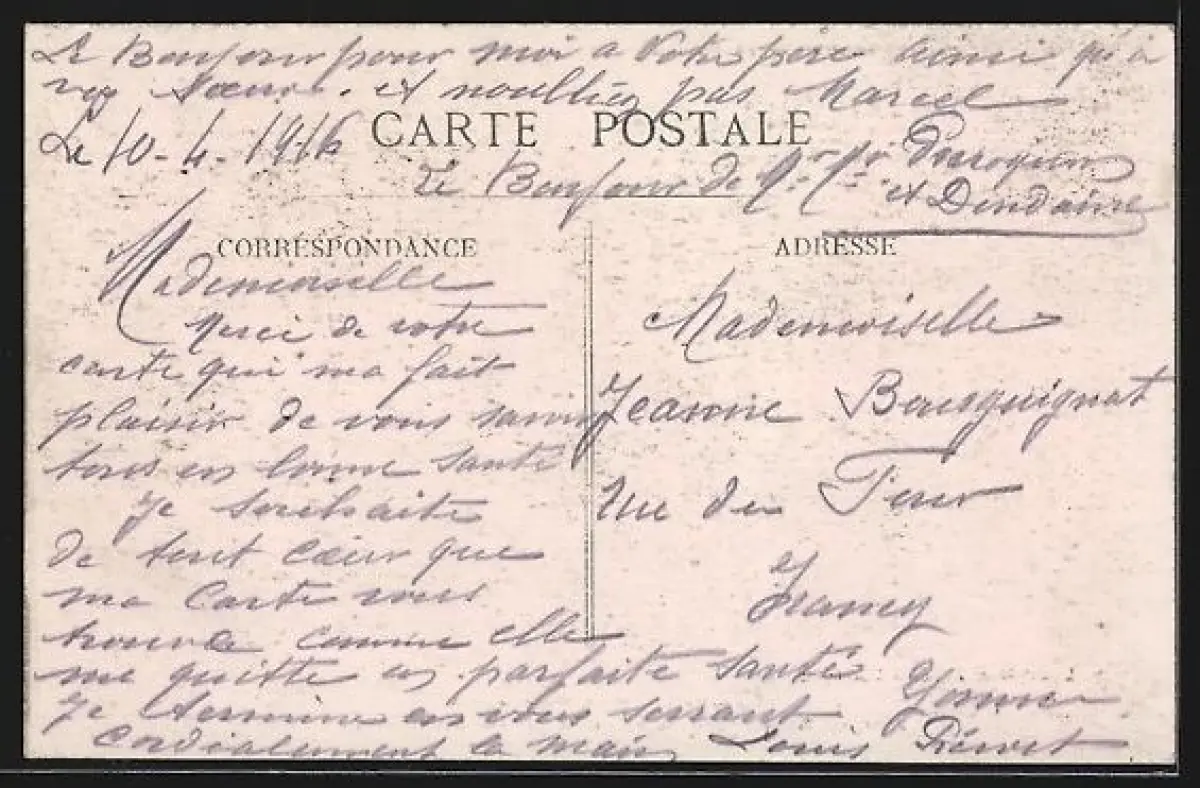 Le Bonjour pour moi a Votre père ainsi qu'à
vos Sœurs. et noubliez pas Marcel
Le 10-4-1916
CARTE POSTALE
Le Bonjour de
et Dindaine
CORRESPONDANCE
Mademoiselle
Merci de votre
carte qui ma fait
plaisir de vous savoir
tous en bonne santé
Je souhaite
de tout cœur que
ma Carte vous
trouve comme elle
me quitte en parfaite santé
Je termine en vous serrant
cordialement la main Louis
ADRESSE
Mademoiselle
Jeanne Bourguignat
rue du Four
Irancy
Yonne